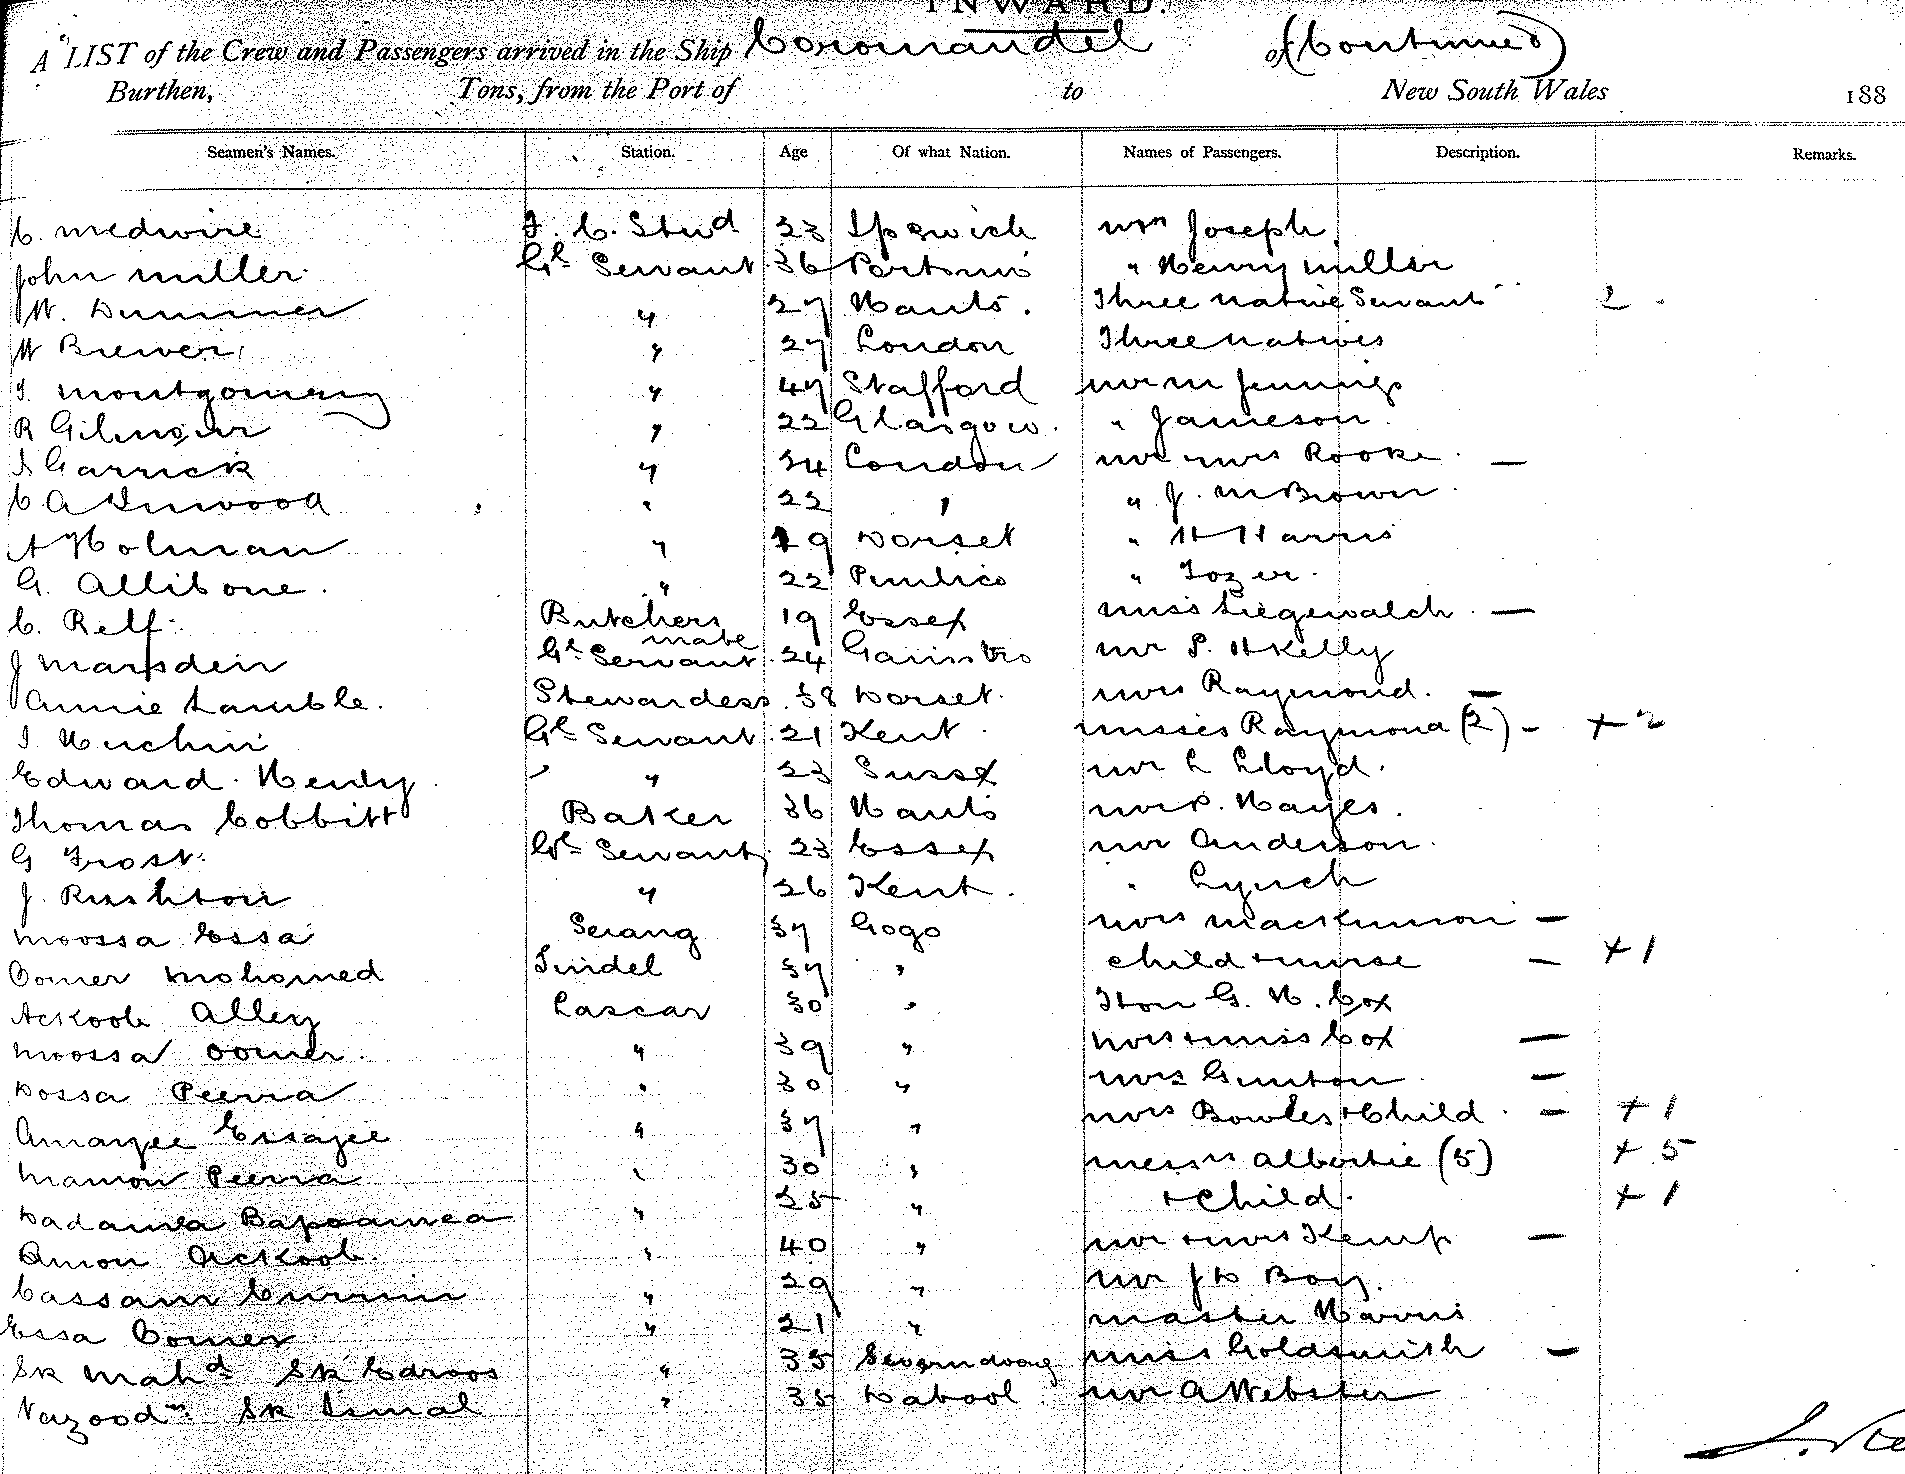 INWARD.
A LIST of the Crew and Passengers arrived in the Ship Coromandel of (Continued)
Burthen, Tons, from the Port of to New South Wales 188
Seamen's Names. Station. Age Of what Nation. Names of Passengers. Description. Remarks.
C. Medwire 23 Ipswich Mr Joseph
John Miller Gl Servant 36 " Henry Miller
W. Dummer " 27 Hants. Three native Servants 2
W Brewer " 27 London Three natives
T. Montgomery " 47 Stafford Mr M Jennings
R Gilmour " 22 Glasgow. " Jameson
Garrick " 34 London Mr Mrs Rooke —
C A Inwood " 22 " " J. M Brown
A Holman " 19 Dorset " H Harris
G. Allibone. " 22 Pimlico " Tozer.
C. Relf Butchers mate 19 Essex Miss —
J Marsden Gl Servant 24 Mr P. H Kelly
Annie Lamble. Stewardess 38 Dorset. Mrs Raymond. —
Gl Servant 21 Kent Misses Raymond (2) — + 2
Edward Henly " 23 Sussex Mr L Lloyd.
Thomas Cobbitt Baker 36 Hants Mr P. Hayes.
G Frost Gl Servant 23 Essex Mr Anderson.
J. Rushton " 26 Kent " Lynch
Moossa Essa Serang 37 Gogo Mrs MacKinnon —
Oomer Mohomed Tindel 37 " child + nurse — + 1
Ackoob Alley Lascar 30 " Hon G. H. Cox
Moossa Oomer " 39 " Mrs + Miss Cox —
Dossa Peerra " 30 " Mrs Gunton —
Amayee Essayee " 37 " Mrs Bowles + Child — + 1
Mamon Peerra " 30 " Messrs (5) + 5
Dadamea Bapoamea " 25 " + Child. + 1
Amon Ackoob " 40 " Mr + Mrs Kemp —
Cassam Currim " 29 " Mr J D Boy.
Essa Oomer " 21 " Master Harris
Sk Mahd Sk Edroos " 35 Miss Goldsmith —
Sk Ismal " 35 Dabool Mr A Webster